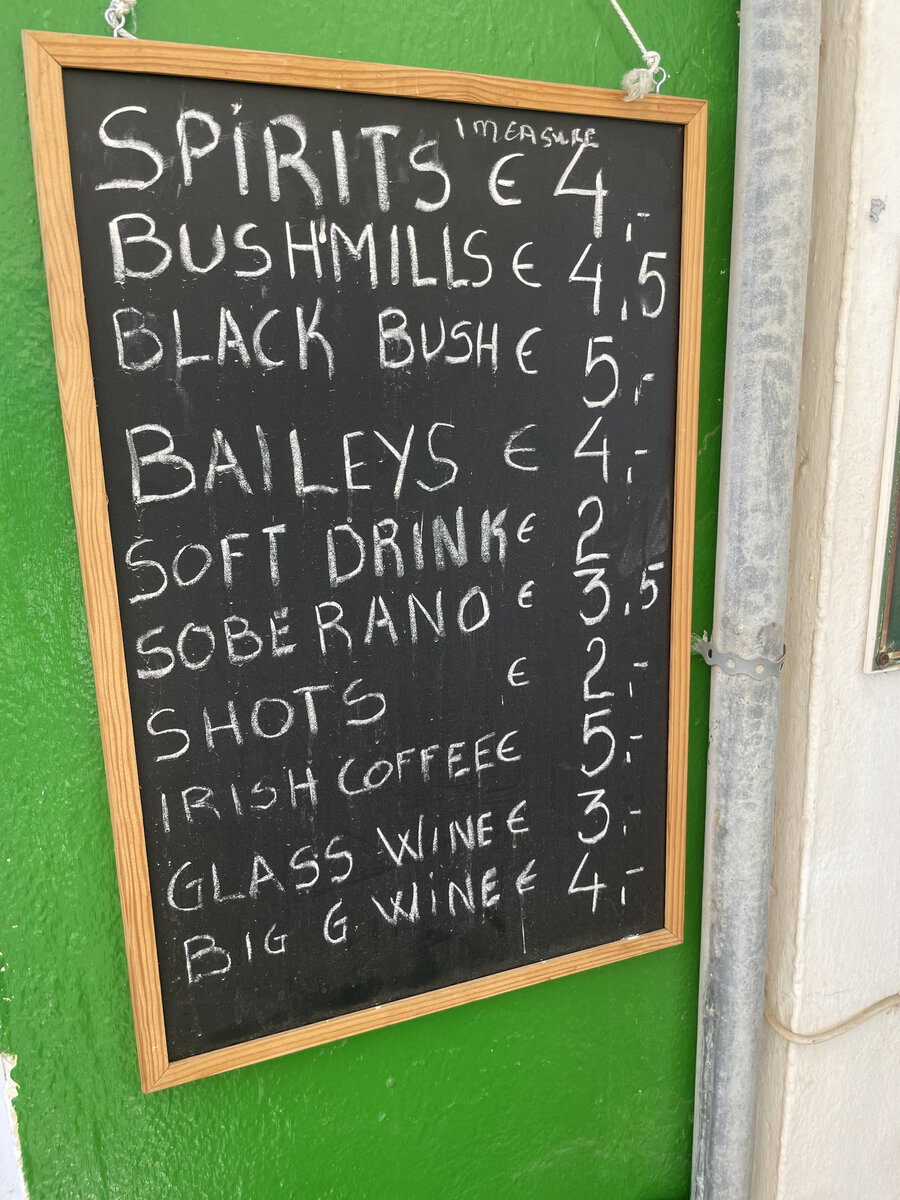 1 MEASURE
SPIRITS € 4,-
BUSHMILLS € 4,5
BLACK BUSH € 5,-
BAILEYS € 4,-
SOFT DRINK € 2
SOBERANO € 3,5
SHOTS € 2,-
IRISH COFFEE € 5,-
GLASS WINE € 3,-
BIG G WINE € 4,-